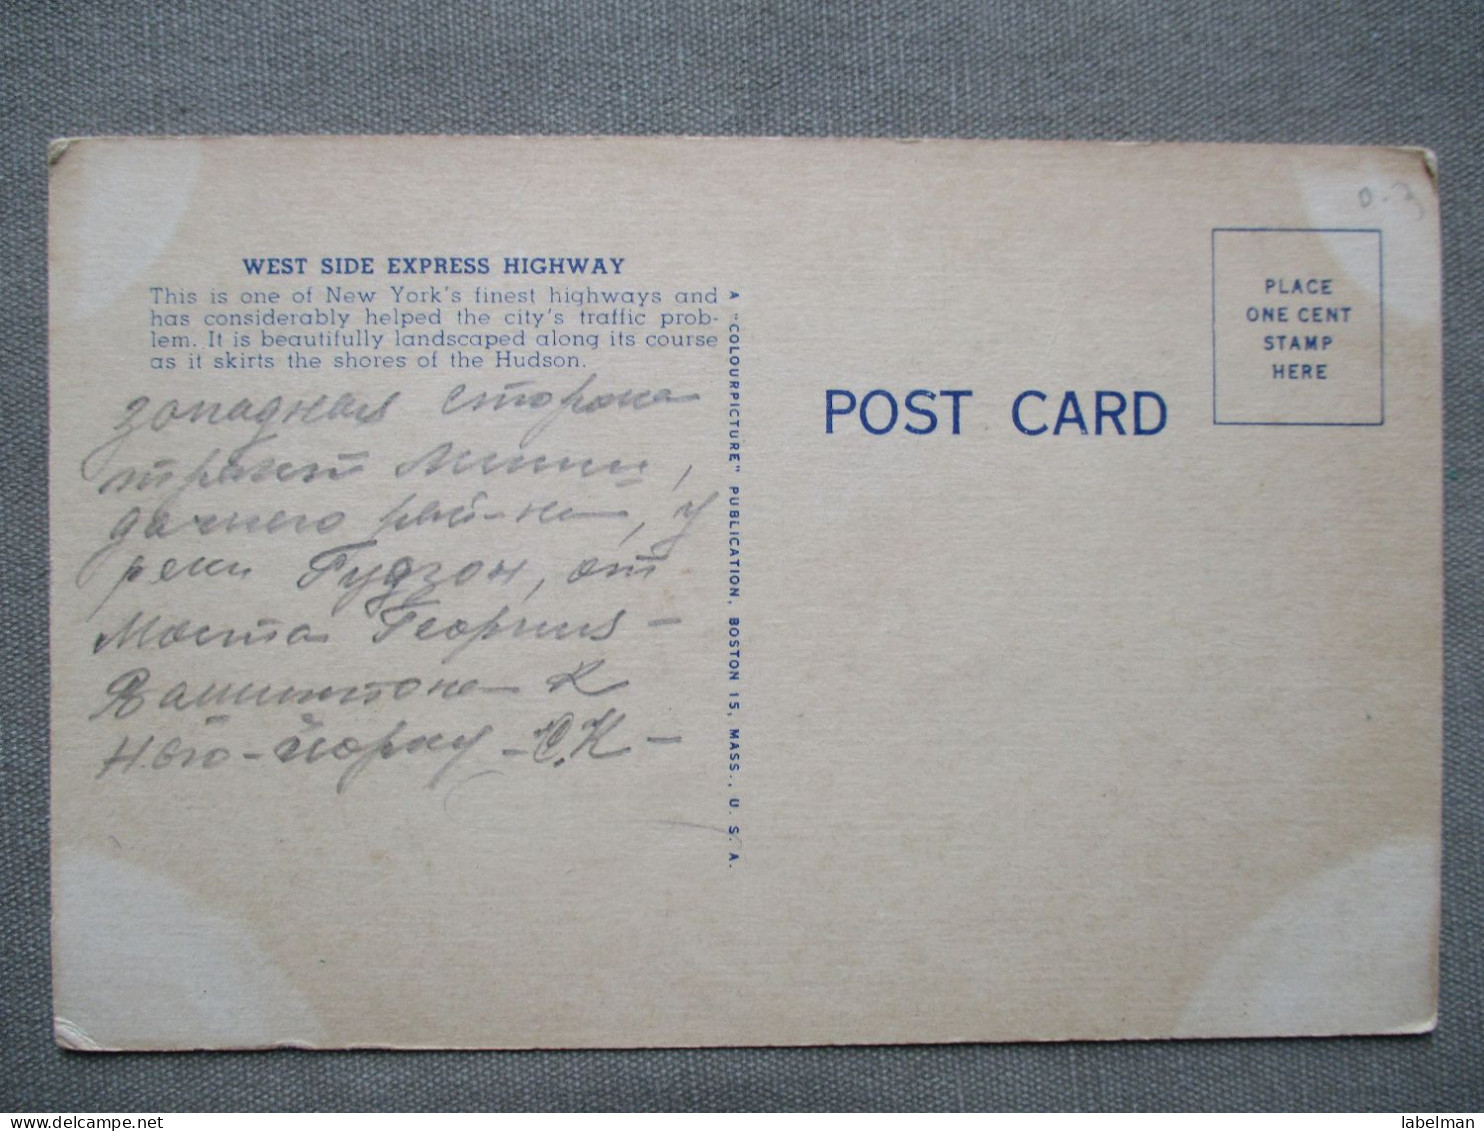 WEST SIDE EXPRESS HIGHWAY
This is one of New York's finest highways and
has considerably helped the city's traffic prob-
lem. It is beautifully landscaped along its course
as it skirts the shores of the Hudson.
западная сторона
дачного
реки Гудзон, от
Моста Георгия-
Вашингтона к
Нью-Йорку - С.К -
A "COLOURPICTURE" PUBLICATION, BOSTON 15, MASS., U. S. A.
POST CARD
PLACE
ONE CENT
STAMP
HERE
0-3
labelman
www.delcampe.net